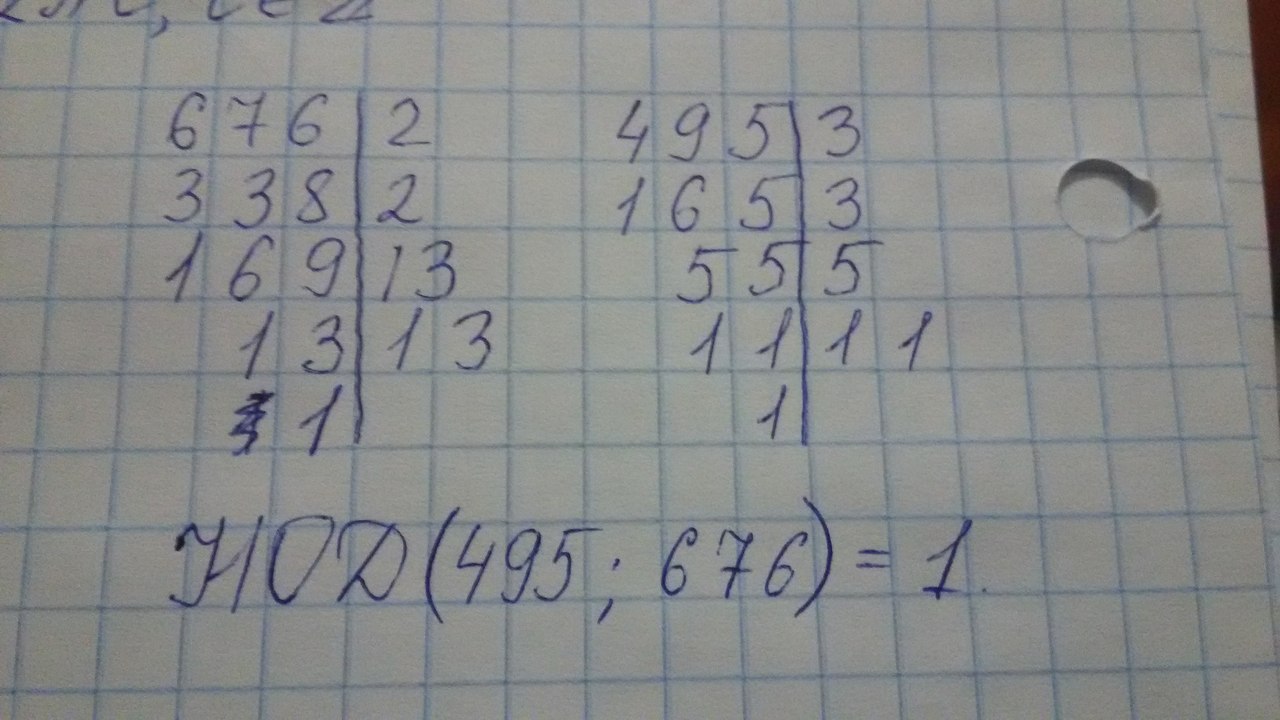 676 | 2
338 | 2
169 | 13
13 | 13
1 |
495 | 3
165 | 3
55 | 5
11 | 11
1 |
НОД(495; 676) = 1.